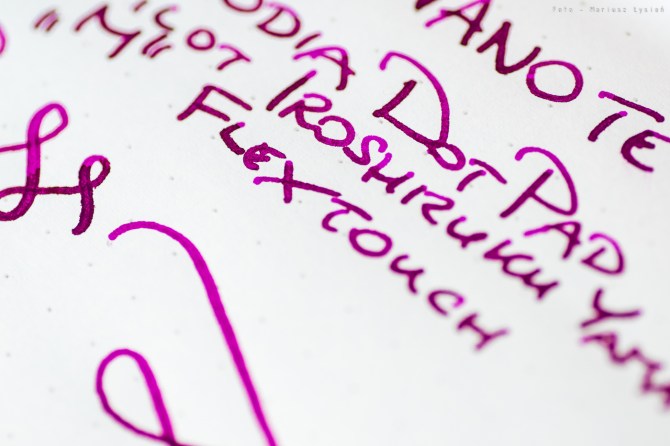 Foto - Mariusz Łysień
NANOTE
ODIA DOT PAD
IROSHIZUKU YAMA
FLEX TOUCH